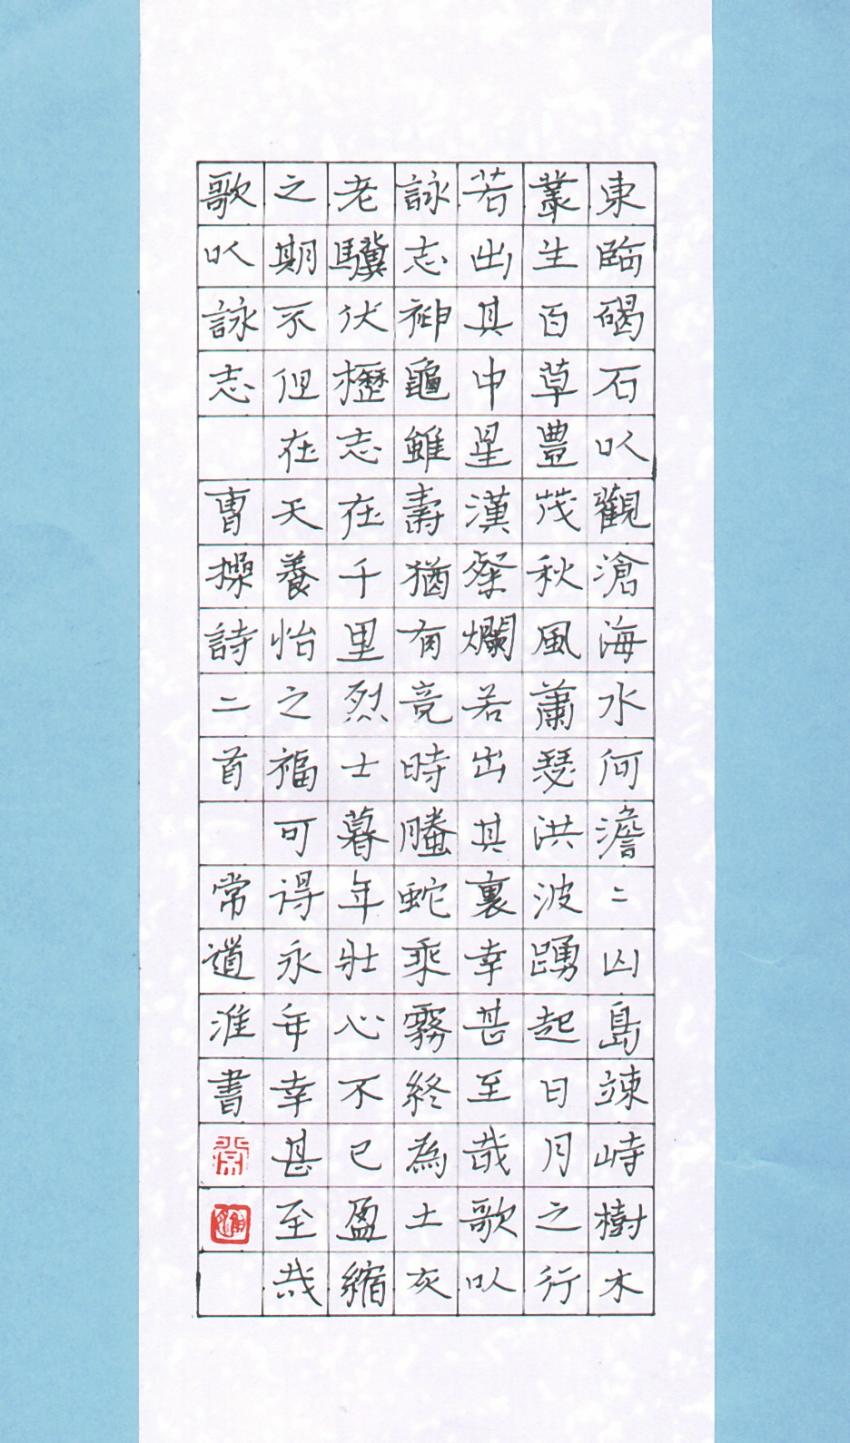 東臨碣石以觀滄海水何澹〻山島竦峙樹木
叢生百草豐茂秋風蕭瑟洪波踴起日月之行
若出其中星漢粲爛若出其裏幸甚至哉歌以
詠志神龜雖壽猶有竟時螣蛇乘霧終為土灰
老驥伏櫪志在千里烈士暮年壯心不已盈縮
之期不但在天養怡之福可得永年幸甚至哉
歌以詠志　曹操詩二首　常道淮書
常